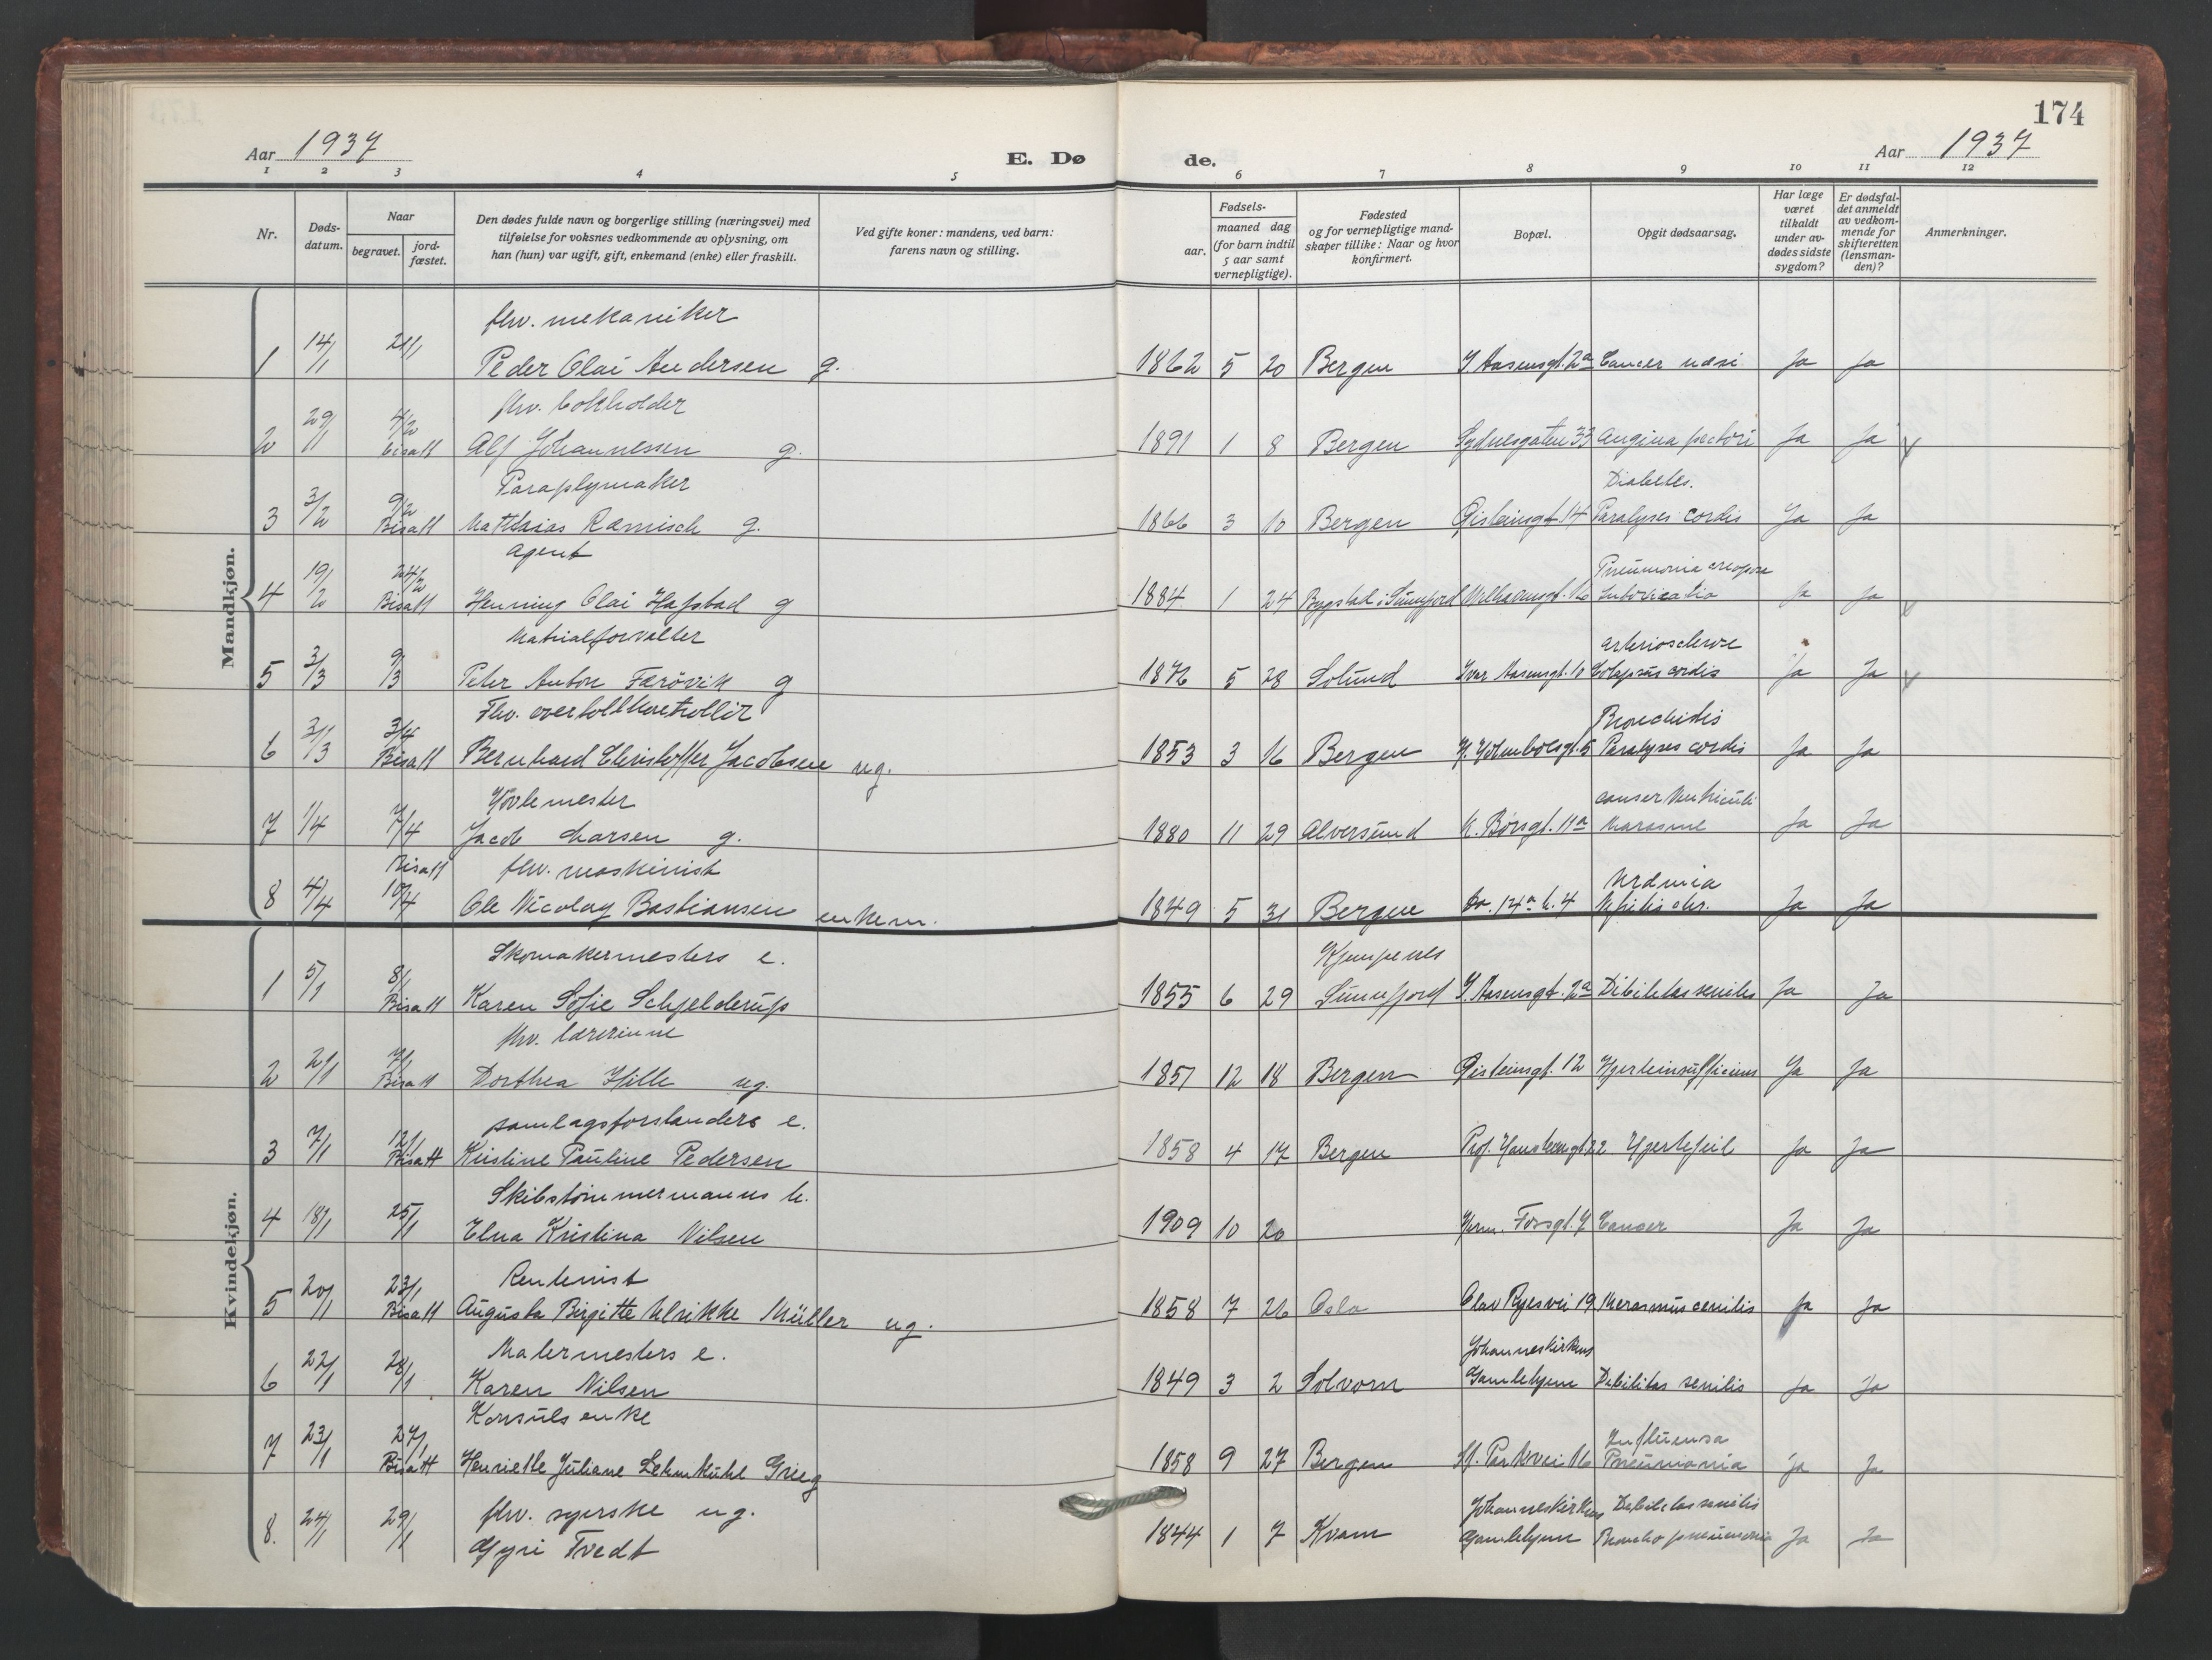 174
Aar 1937
E. Dø de.
Aar 1937
1 2 3 4 5 6 7 8 9 10 11 12
Nr.
Døds-datum.
Naar
begravet.
jord-fæstet.
Den dødes fulde navn og borgerlige stilling (næringsvei) med
tilføielse for voksnes vedkommende av oplysning, om
han (hun) var ugift, gift, enkemand (enke) eller fraskilt.
Ved gifte koner: mandens, ved barn:
farens navn og stilling.
Fødsels-
aar.
maaned dag
(for barn indtil
5 aar samt
vernepligtige).
Fødested
og for vernepligtige mand-
skaper tillike: Naar og hvor
konfirmert.
Bopæl.
Opgit dødsaarsag.
Har læge
været
tilkaldt
under av-
dødes sidste
sygdom?
Er dødsfal-
det anmeldt
av vedkom-
mende for
skifteretten
(lensman-
den)?
Anmerkninger.
Mandkjøn.
fhv. mekaniker
1 14/1 21/1 Peder Olai Andersen g. 1862 5 20 Bergen I. Aasensgt. 2a Cancer Ja Ja
fhv. bokholder
2 29/1 4/2 bisatt Alf Johannessen g. 1891 1 8 Bergen Sydnesgaten 33 Angina pectori Ja Ja
Paraplymaker Diabetes.
3 3/2 9/2 Bisatt Matthias Ramisch g. 1866 3 10 Bergen Øisteinsgt. 14 Paralyses cordis Ja Ja
Agent Pneumonia
4 19/2 24/2 Bisatt Henning Olai Hafstad g 1884 1 24 Bygstad i Sunnfjord Welhavensgt. 16 Ja Ja
Matrialforvalter arteriosclerose
5 3/3 9/3 Peter Anton Færövik g 1876 5 28 Solund Ivar Aasensgt. 10 cordis Ja Ja
Fhv. overtollkontrollör Bronchitis
6 31/3 3/4 Bisatt Bernhard Christoffer Jacobsen ug. 1853 3 16 Bergen H. Holmboesgt. 5 Paralyses cordis Ja Ja
Hövlemester canser Ventriculi
7 1/4 7/4 Jacob Larsen g. 1880 11 29 Alversund K. Børsgt. 11a Marasme Ja Ja
Bisatt fhv. maskinist Uremia
8 4/4 10/4 Ole Nicolay Bastiansen enkem. 1849 5 31 Bergen Do. 14a h. 4 Nefritis chr. Ja Ja
Kvindekjøn.
Skomakermesters e.
1 5/1 8/1 Bisatt Karen Sofie Schjelderup 1855 6 29 Sunnfjord I. Aasensgt. 2a Dibilitas seniles Ja Ja
fhv. lærerinne
2 2/1 7/1 Bisatt Dorthea Hille ug. 1857 12 18 Bergen Øisteinsgt. 12 Hjerteinsufficiens Ja Ja
samlagsforstanders e.
3 7/1 12/1 Bisatt Kristine Pauline Pedersen 1858 4 17 Bergen Prof. Hansteensgt. 22 Hjertefeil Ja Ja
Skibstömmermanns h.
4 18/1 25/1 Elna Kristina Nilsen 1909 10 20 Herm. Fossgt. 7 Canser Ja Ja
Rentenist
5 20/1 23/1 Bisatt Augusta Birgitte Ulrikke Müller ug. 1858 7 26 Oslo Olav Ryesvei 19 Merasmus cenilis Ja Ja
Malermesters e. Johanneskirkens
6 22/1 28/1 Karen Nilsen 1849 3 2 Solvorn Gamlehjem Debilitas senilis Ja Ja
Konsuls enke Influensa
7 23/1 27/1 Bisatt Henriette Juliane Lehmkuhl Grieg 1858 9 27 Bergen St. Parkvei 16 Pneumonia Ja Ja
fhv. syerske ug. Johanneskirkens Debiletas senilis
8. 24/1 29/1 Gyri Tvedt 1844 1 7 Kvam Gamlehjem Broncho pneumonia Ja Ja